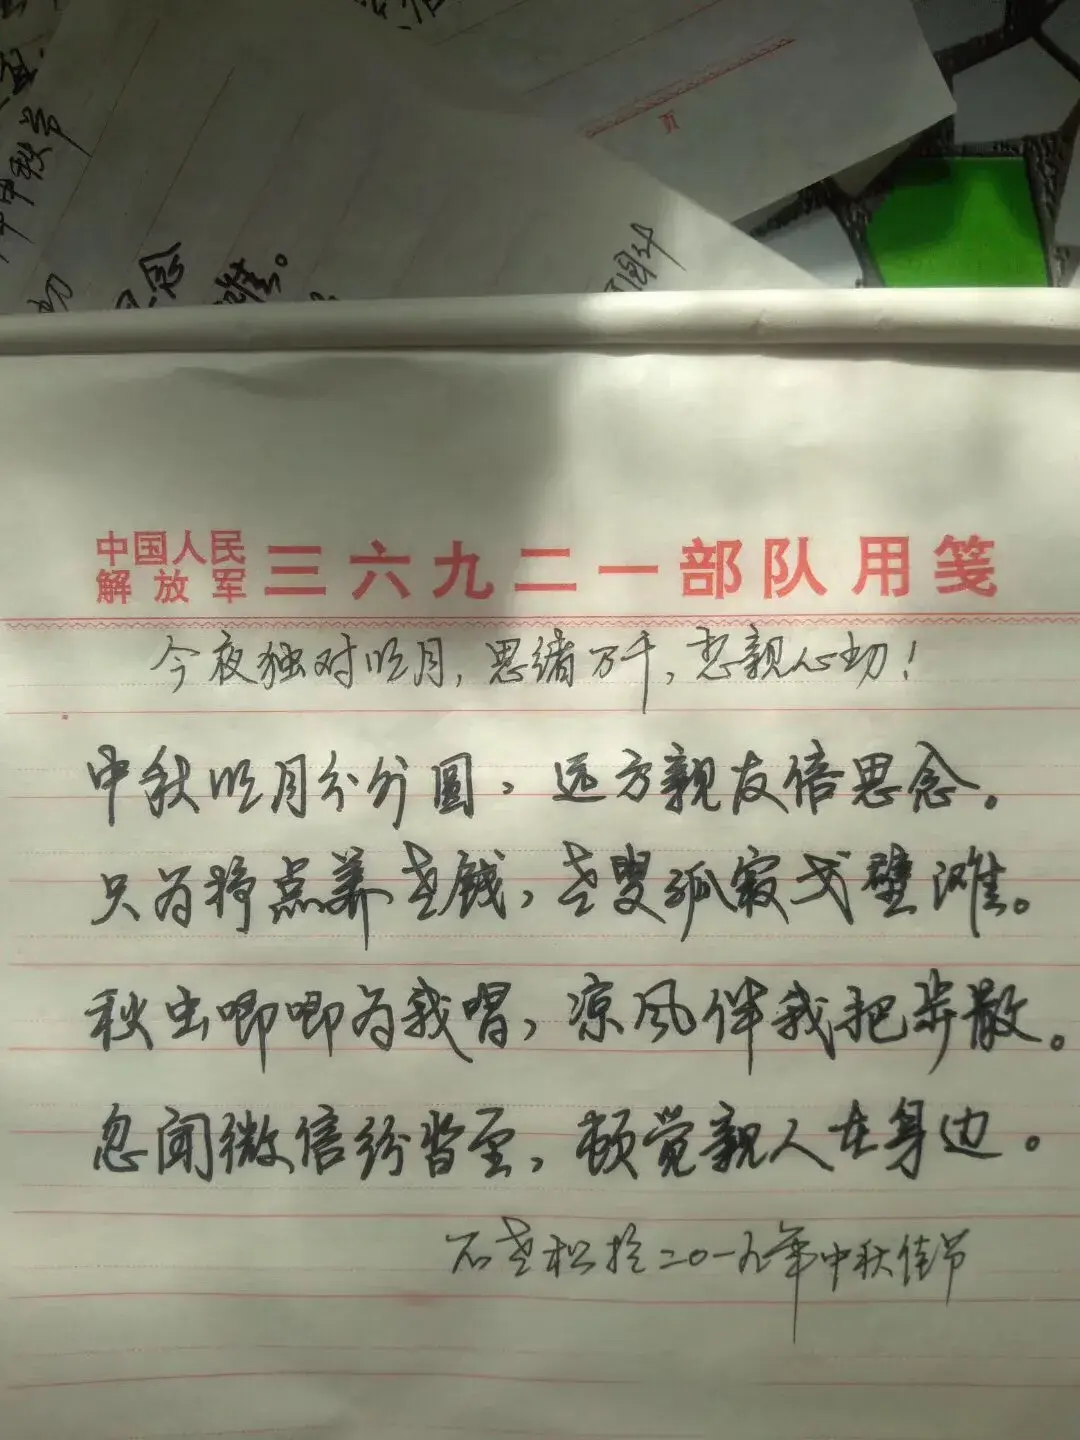 中秋节
切
思念
滩。
页
中国人民
解放军 三六九二一部队用笺
今夜独对明月,思绪万千,恋亲心切!
中秋明月分外圆,远方亲友倍思念。
只为挣点养老钱,老叟孤寂戈壁滩。
秋虫唧唧为我唱,凉风伴我把步散。
忽闻微信纷沓至,顿觉亲人在身边。
石老松于二〇一九年中秋佳节